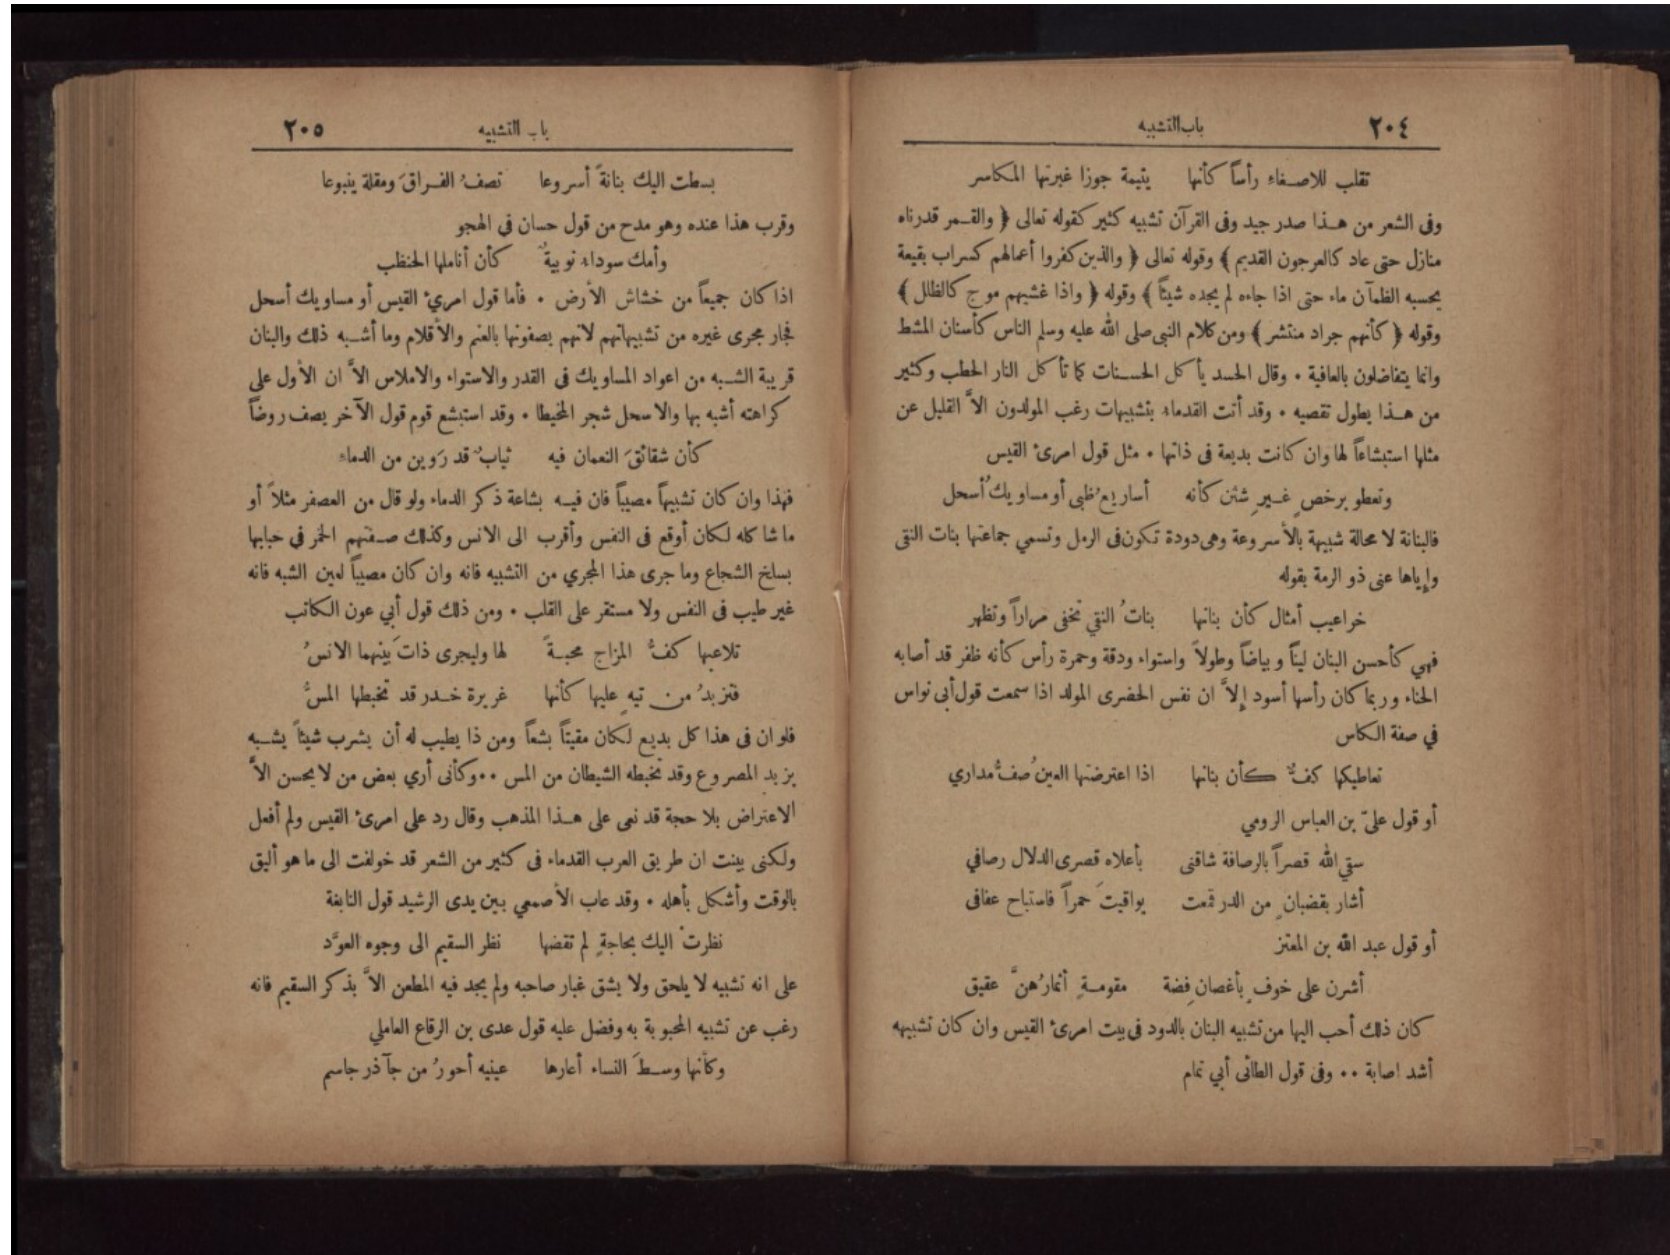 ٢٠٤
باب التشبيه
تقلب للاصغاء رأساً كأنها يتيمة جوزا غيرتها المكاسر
وفى الشعر من هذا صدر جيد وفى القرآن تشبيه كثير كقوله تعالى ﴿ والقمر قدرناه
منازل حتى عاد كالعرجون القديم ﴾ وقوله تعالى ﴿ والذين كفروا أعمالهم كسراب بقيعة
يحسبه الظمآن ماء حتى اذا جاءه لم يجده شيئاً ﴾ وقوله ﴿ واذا غشيهم موج كالظلل ﴾
وقوله ﴿ كأنهم جراد منتشر ﴾ ومن كلام النبى صلى الله عليه وسلم الناس كأسنان المشط
وانما يتفاضلون بالعافية ٠ وقال الحسد يأكل الحسنات كما تأكل النار الحطب وكثير
من هذا يطول تقصيه ٠ وقد أتت القدماء بتشبيهات رغب المولدون الاَّ القليل عن
مثلها استبشاعاً لها وان كانت بديعة فى ذاتها ٠ مثل قول امرئ القيس
وتعطو برخصٍ غيرِ شثن كأنه أساريعُ ظبى أو مساويكُ أسحل
فالبنانة لا محالة شبيهة بالأسروعة وهى دودة تكون فى الرمل وتسمي جماعتها بنات النقى
وإياها عنى ذو الرمة بقوله
خراعيب أمثال كأن بنانها بناتُ النقي تخفى مراراً وتظهر
فهي كأحسن البنان ليناً وبياضاً وطولاً واستواء ودقة وحمرة رأس كأنه ظفر قد أصابه
الحناء وربما كان رأسها أسود إلاَّ ان نفس الحضرى المولد اذا سمعت قول أبى نواس
في صفة الكاس
تعاطيكها كفٌّ كأن بنانها اذا اعترضتها العينُ صفُّ مداري
أو قول علىّ بن العباس الرومي
سقي الله قصراً بالرصافة شاقنى بأعلاه قصرى الدلال رصافي
أشار بقضبانٍ من الدر قمعت يواقيتَ حمراً فاستباح عفافى
أو قول عبد الله بن المعتز
أشرن على خوفٍ بأغصان فضة مقومةٍ أثمارُهنَّ عقيق
كان ذلك أحب اليها من تشبيه البنان بالدود فى بيت امرئ القيس وان كان تشبيهه
أشد اصابة ٠٠ وفى قول الطائى أبي تمام
باب التشبيه
٢٠٥
بسطت اليك بنانةً أسروعا تصفُ الفراقَ ومقلة ينبوعا
وقرب هذا عنده وهو مدح من قول حسان في الهجو
وأمك سوداء نوبيةٌ كأن أناملها الحنظب
اذا كان جميعاً من خشاش الأرض ٠ فأما قول امريُ القيس أو مساويك أسحل
فجار مجرى غيره من تشبيهاتهم لانهم يصفونها بالعنم والأقلام وما أشبه ذلك والبنان
قريبة الشبه من اعواد المساويك فى القدر والاستواء والاملاس الاَّ ان الأول على
كراهته أشبه بها والاسحل شجر المخيطا ٠ وقد استبشع قوم قول الآخر يصف روضاً
كأن شقائقَ النعمان فيه ثيابٌ قد رَوين من الدماء
فهذا وان كان تشبيهاً مصيباً فان فيه بشاعة ذكر الدماء ولو قال من العصفر مثلاً أو
ما شاكله لكان أوقع فى النفس وأقرب الى الانس وكذلك صفتهم الخمر في حبابها
بسلخ الشجاع وما جرى هذا المجري من التشبيه فانه وان كان مصيباً لعين الشبه فانه
غير طيب فى النفس ولا مستقر على القلب ٠ ومن ذلك قول أبي عون الكاتب
تلاعبها كفُّ المزاج محبةً لها وليجرى ذات بينهما الانسُ
فتزبدُ من تيهٍ عليها كأنها غريرة خدر قد تخبطها المسُّ
فلو ان فى هذا كل بديع لكان مقيتاً بشعاً ومن ذا يطيب له أن يشرب شيئاً يشبه
بزبد المصروع وقد تخبطه الشيطان من المس ٠٠ وكأنى أري بعض من لا يحسن الاَّ
الاعتراض بلا حجة قد نعى على هذا المذهب وقال رد على امرئ القيس ولم أفعل
ولكنى بينت ان طريق العرب القدماء فى كثير من الشعر قد خولفت الى ما هو أليق
بالوقت وأشكل بأهله ٠ وقد عاب الأصمعي بين يدى الرشيد قول النابغة
نظرتْ اليك بحاجةٍ لم تقضها نظر السقيم الى وجوه العوَّد
على انه تشبيه لا يلحق ولا يشق غبار صاحبه ولم يجد فيه المطعن الاَّ بذكر السقيم فانه
رغب عن تشبيه المحبوبة به وفضل عليه قول عدى بن الرقاع العاملي
وكأنها وسطَ النساء أعارها عينيه أحورُ من جآذر جاسم